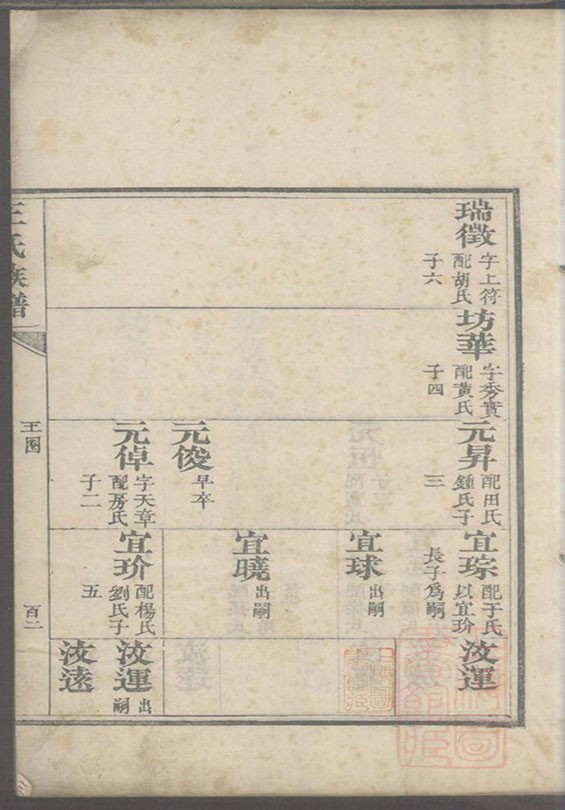 瑞徵
字上符
配胡氏
子六
坊華
字秀實
配黃氏
子四
元昇
配田氏
鍾氏子
三
元俊
早卒
元倬
字天章
配房氏
子二
宜琮
配于氏
以宜玠
長子爲嗣
宜球
出嗣
宜曉
出嗣
宜玠
配楊氏
劉氏子
五
汝運
汝運
出嗣
汝遠
王氏族譜
百二